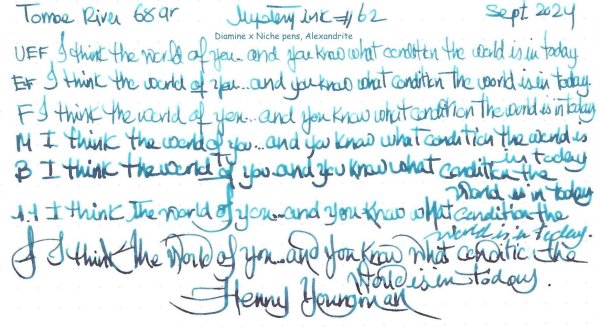 Tomoe River 68gr Mystery ink #62 Sept 2024
Diamine x Niche pens, Alexandrite
UEF I think the world of you... and you know what condition the world is in today
EF I think the world of you... and you know what condition the world is in today.
F I think the world of you... and you know what condition the world is in today
M I think the world of you... and you know what condition the world is
in today
B I think the world of you... and you know what condition the
world is in today
1.1 I think The world of you... and you know what condition the
world is in today.
I think the World of you... and you know what conditio the
World is in today.
Henny Youngman